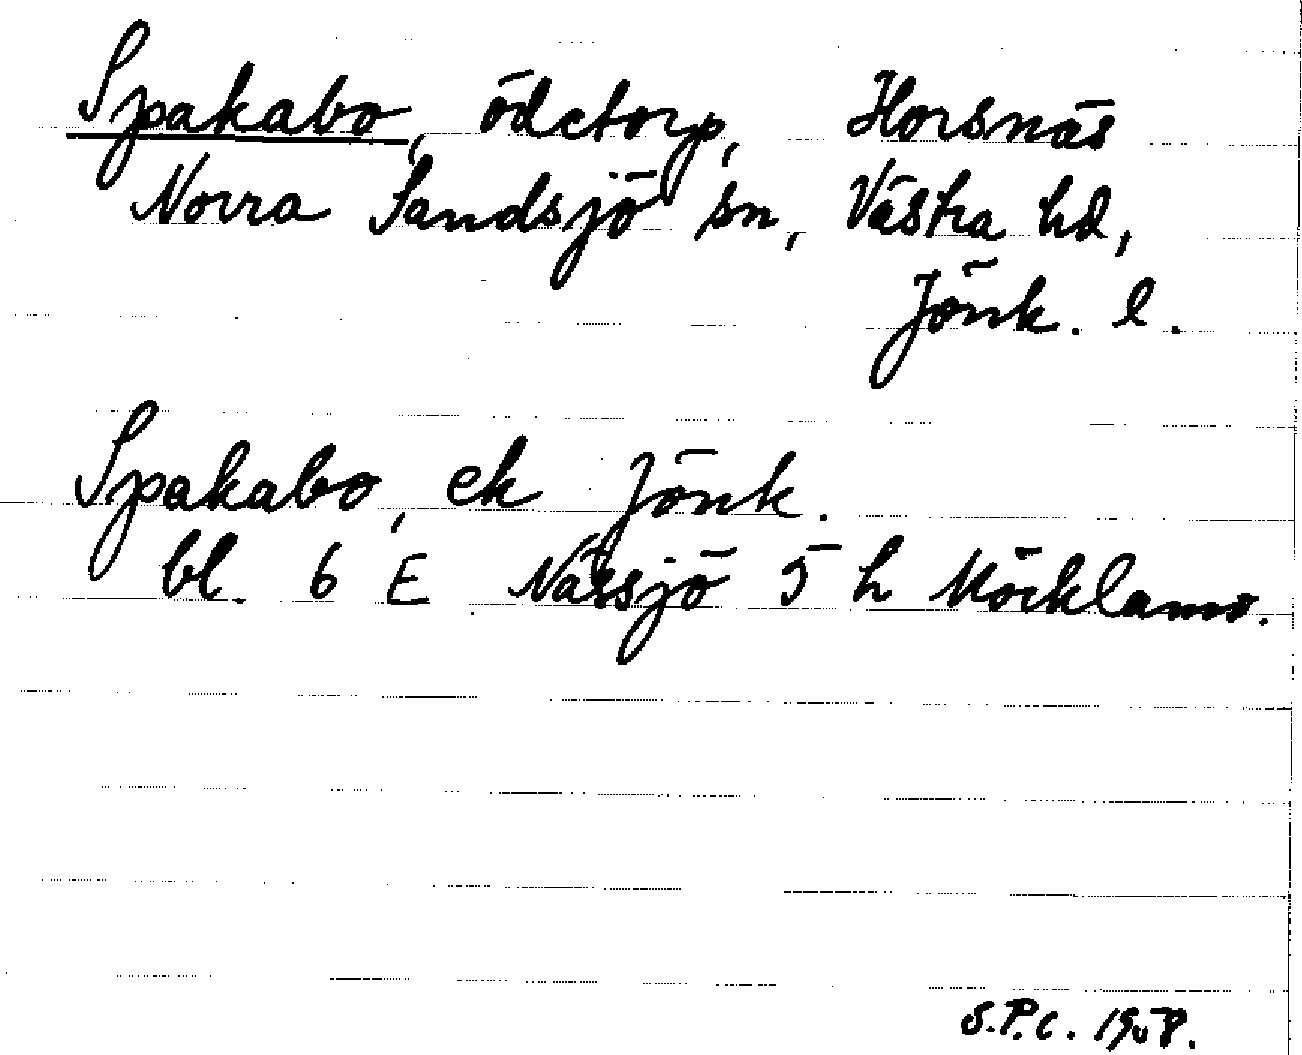 Spakabo, ödetorp, Horsnäs
Norra Sandsjö sn, Västra hd,
Jönk. l.
Spakabo, ek Jönk.
bl. 6 E Nässjö 5 h Möcklamo.
S.P.C. 1958.